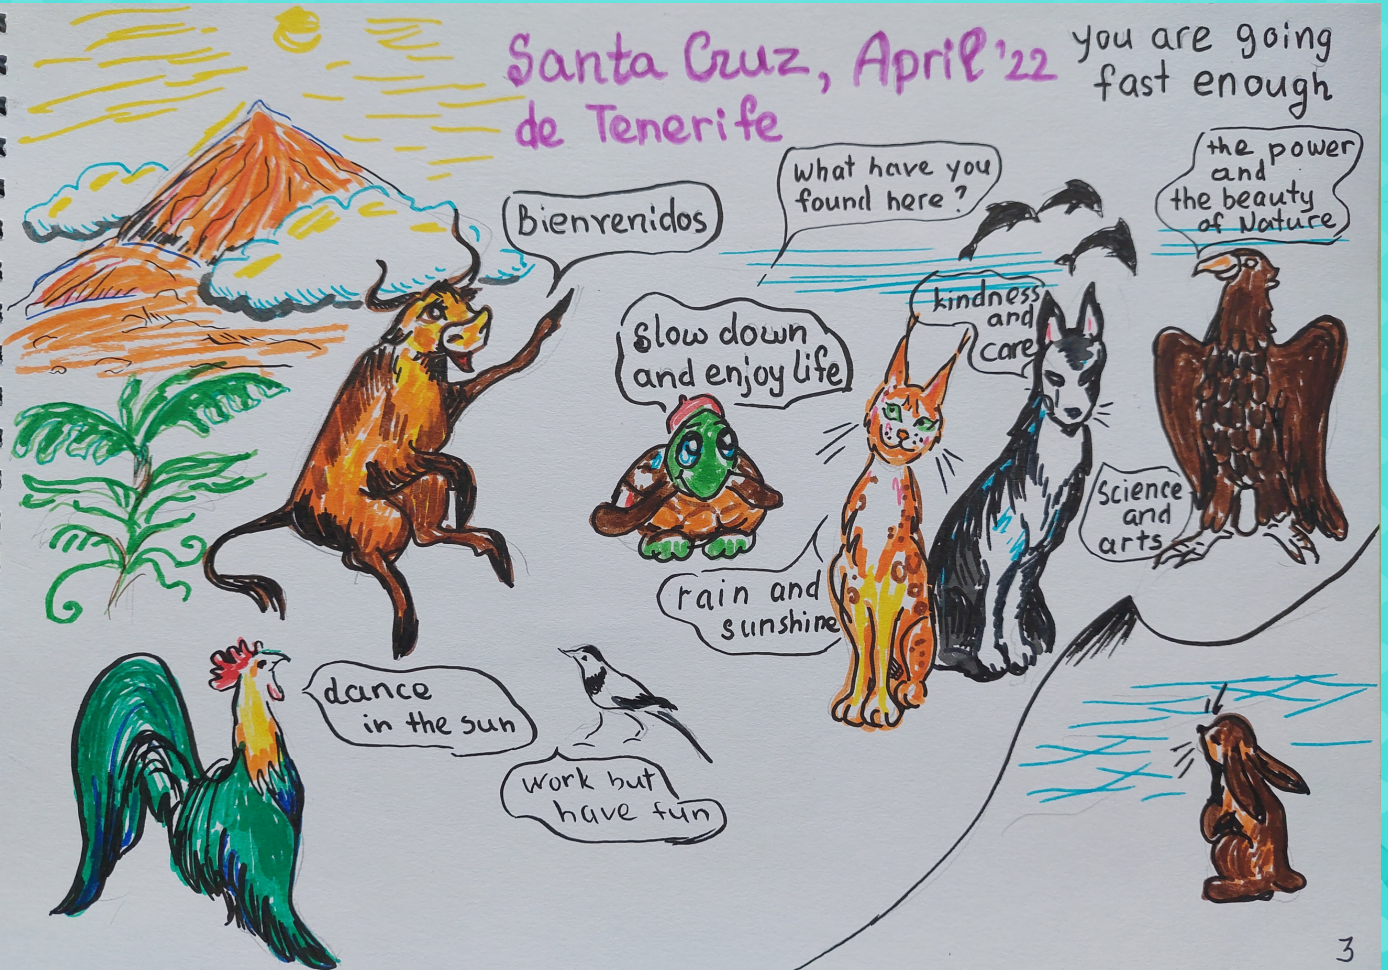 Santa Cruz, April '22
de Tenerife
you are going
fast enough
Bienvenidos
what have you
found here?
the power
and
the beauty
of Nature
slow down
and enjoy life
kindness
and
care
Science
and
arts
rain and
sunshine
dance
in the sun
work but
have fun
3